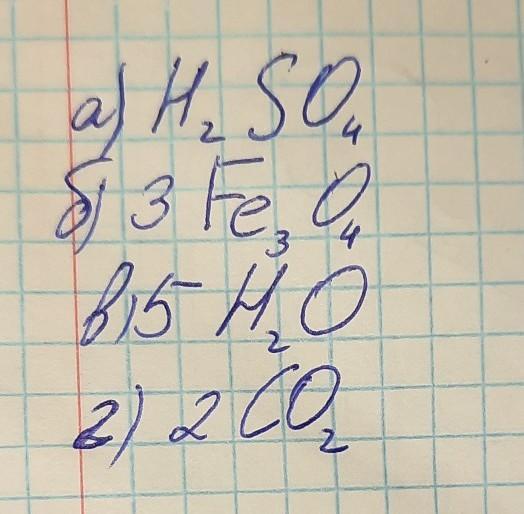 а) H₂SO₄
б) 3 Fe₃O₄
в) 5 H₂O
г) 2 CO₂